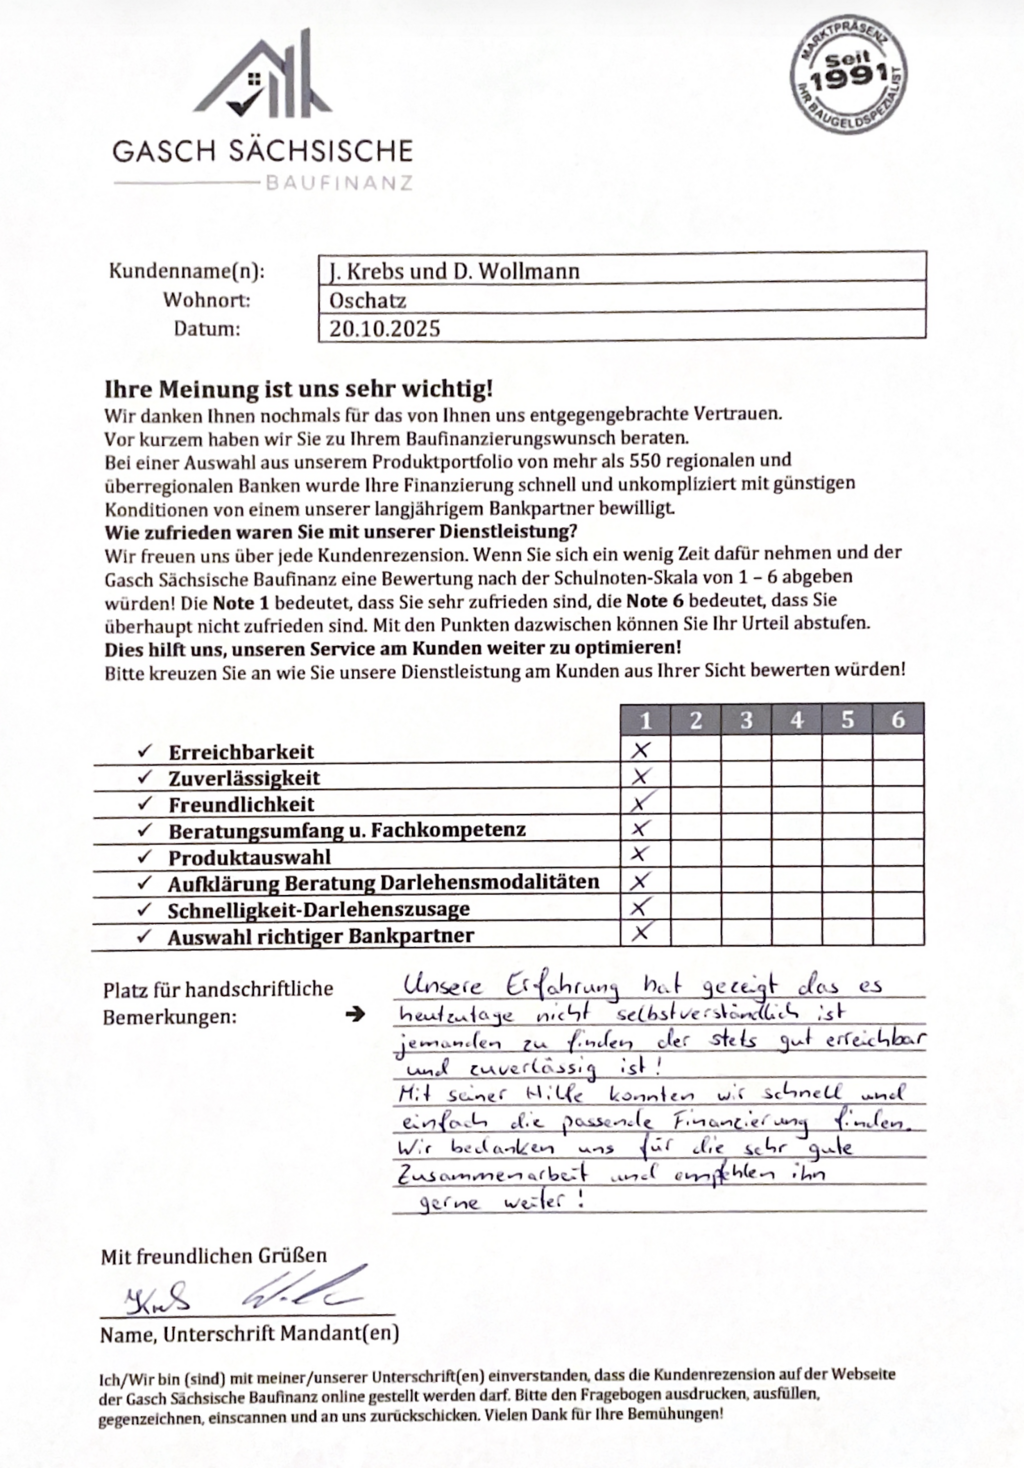 MARKTPRÄSENZ
Seit
1991
IHR BAUGELDSPEZIALIST
GASCH SÄCHSISCHE
BAUFINANZ
Kundenname(n): J. Krebs und D. Wollmann
Wohnort: Oschatz
Datum: 20.10.2025
Ihre Meinung ist uns sehr wichtig!
Wir danken Ihnen nochmals für das von Ihnen uns entgegengebrachte Vertrauen.
Vor kurzem haben wir Sie zu Ihrem Baufinanzierungswunsch beraten.
Bei einer Auswahl aus unserem Produktportfolio von mehr als 550 regionalen und
überregionalen Banken wurde Ihre Finanzierung schnell und unkompliziert mit günstigen
Konditionen von einem unserer langjährigem Bankpartner bewilligt.
Wie zufrieden waren Sie mit unserer Dienstleistung?
Wir freuen uns über jede Kundenrezension. Wenn Sie sich ein wenig Zeit dafür nehmen und der
Gasch Sächsische Baufinanz eine Bewertung nach der Schulnoten-Skala von 1 – 6 abgeben
würden! Die Note 1 bedeutet, dass Sie sehr zufrieden sind, die Note 6 bedeutet, dass Sie
überhaupt nicht zufrieden sind. Mit den Punkten dazwischen können Sie Ihr Urteil abstufen.
Dies hilft uns, unseren Service am Kunden weiter zu optimieren!
Bitte kreuzen Sie an wie Sie unsere Dienstleistung am Kunden aus Ihrer Sicht bewerten würden!
1 2 3 4 5 6
✓ Erreichbarkeit X
✓ Zuverlässigkeit X
✓ Freundlichkeit X
✓ Beratungsumfang u. Fachkompetenz X
✓ Produktauswahl X
✓ Aufklärung Beratung Darlehensmodalitäten X
✓ Schnelligkeit-Darlehenszusage X
✓ Auswahl richtiger Bankpartner X
Platz für handschriftliche
Bemerkungen: ➔
Unsere Erfahrung hat gezeigt das es
heutzutage nicht selbstverständlich ist
jemanden zu finden der stets gut erreichbar
und zuverlässig ist!
Mit seiner Hilfe konnten wir schnell und
einfach die passende Finanzierung finden.
Wir bedanken uns für die sehr gute
Zusammenarbeit und empfehlen ihn
gerne weiter!
Mit freundlichen Grüßen
Name, Unterschrift Mandant(en)
Ich/Wir bin (sind) mit meiner/unserer Unterschrift(en) einverstanden, dass die Kundenrezension auf der Webseite
der Gasch Sächsische Baufinanz online gestellt werden darf. Bitte den Fragebogen ausdrucken, ausfüllen,
gegenzeichnen, einscannen und an uns zurückschicken. Vielen Dank für Ihre Bemühungen!